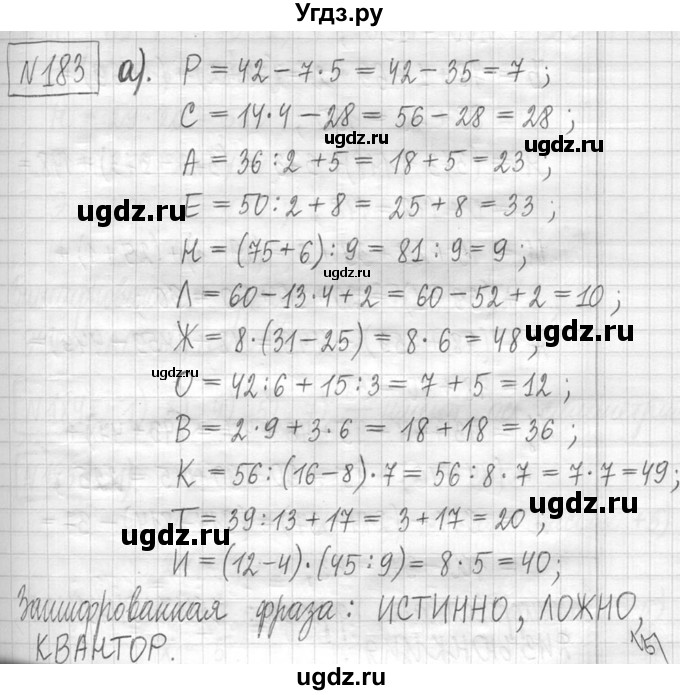 Угдз.ру
№183 а). Р = 42 − 7·5 = 42 − 35 = 7 ;
С = 14·4 − 28 = 56 − 28 = 28 ;
ugdz.ru
А = 36 : 2 + 5 = 18 + 5 = 23 ;
ugdz.ru
ugdz.ru
Е = 50 : 2 + 8 = 25 + 8 = 33 ;
Н = (75+6) : 9 = 81 : 9 = 9 ;
ugdz.ru
Л = 60 − 13·4 + 2 = 60 − 52 + 2 = 10 ;
Ж = 8·(31 − 25) = 8·6 = 48 ;
ugdz.ru
ugdz.ru
О = 42 : 6 + 15 : 3 = 7 + 5 = 12 ;
В = 2·9 + 3·6 = 18 + 18 = 36 ;
К = 56 : (16 − 8)·7 = 56 : 8·7 = 7·7 = 49 ;
ugdz.ru
Т = 39 : 13 + 17 = 3 + 17 = 20 ;
ugdz.ru
И = (12 − 4)·(45 : 9) = 8·5 = 40 ;
Зашифрованная фраза : ИСТИННО, ЛОЖНО,
КВАНТОР.
ugdz.ru
ugdz.ru